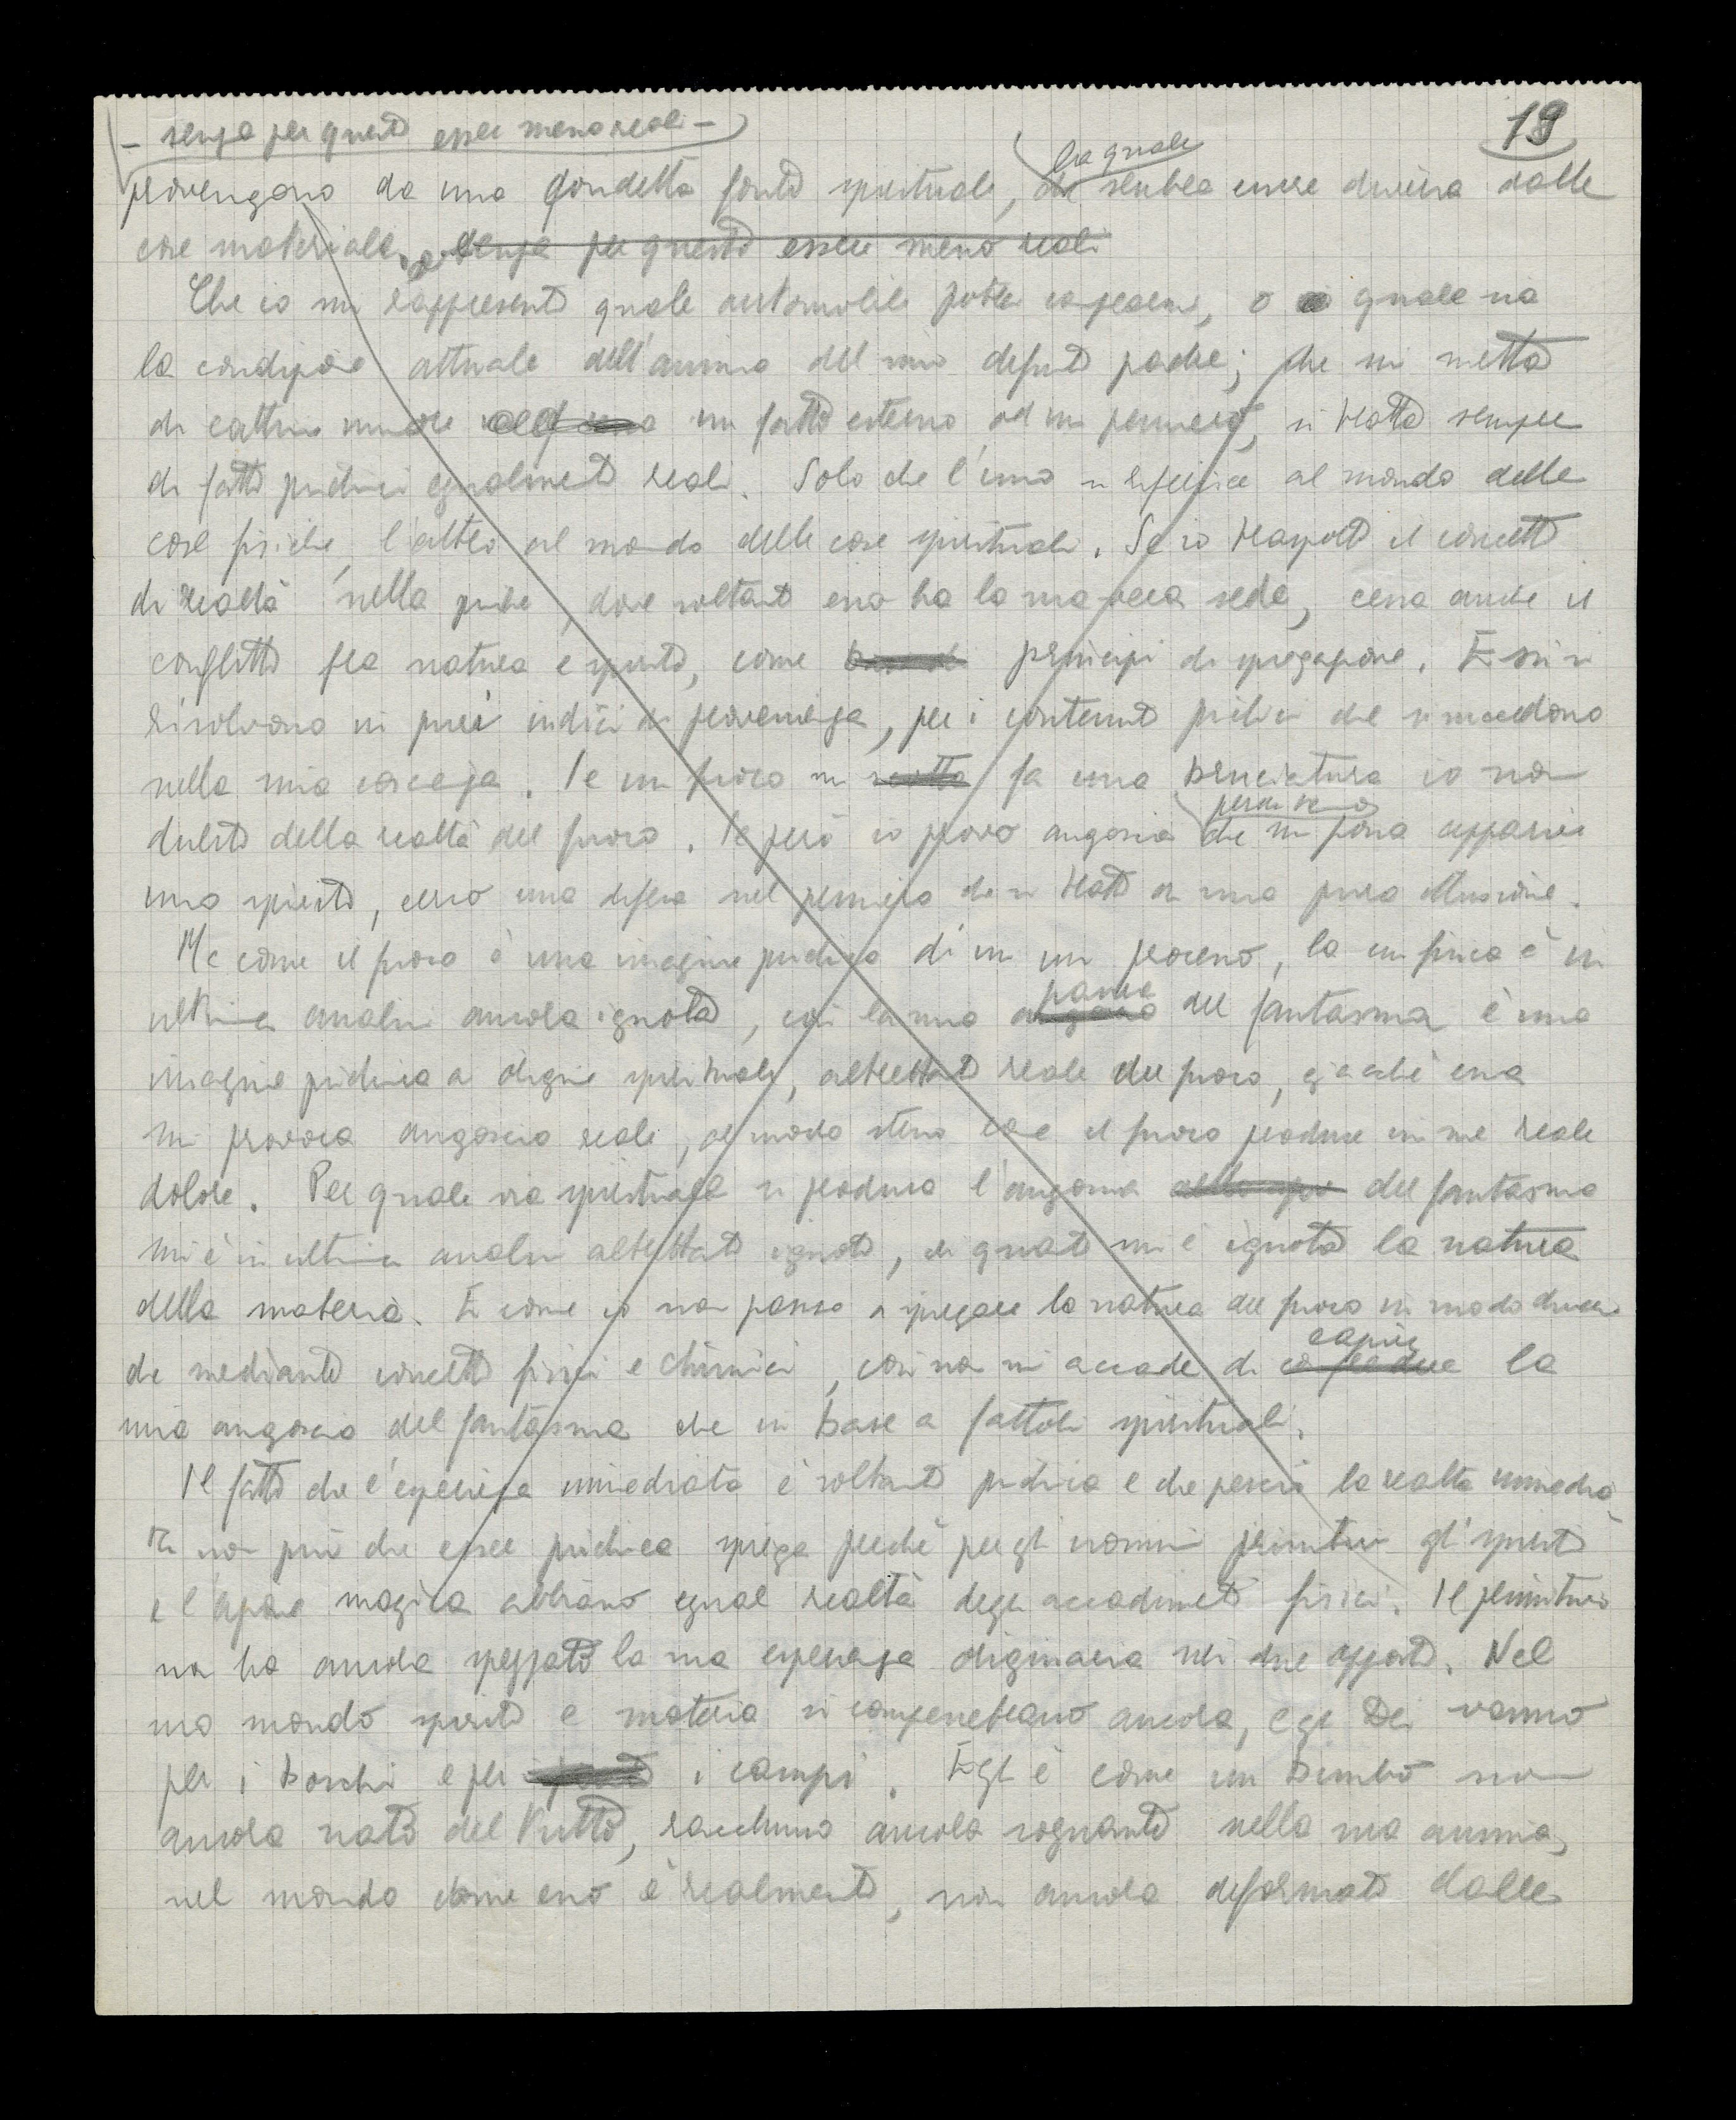 19
– senza per questo esser meno reali –
la quale
provengano da una cosidetta fonte spirituale, che sembra essere diversa dalle
cose materiali, senza per questo essere meno reali
Che io mi rappresenti quale automobile potrei comperarmi, o quale sia
la condizione attuale dell'anima del mio defunto padre; che mi metta
di cattivo umore un fatto esterno od un pensiero, si tratta sempre
di fatti psichici egualmente reali. Solo che l'uno si riferisce al mondo delle
cose fisiche, l'altro al mondo delle cose spirituali. Se io trasporto il concetto
di realtà nella psiche, dove soltanto esso ha la sua vera sede, cessa anche il
conflitto fra natura e spirito, come principi di spiegazione. Essi si
risolvono in puri indici di provenienza, per i contenuti psichici che si succedono
nella mia coscienza. Se un fuoco mi scotta fa una bruciatura io non
dubito della realtà del fuoco. Se però io provo angoscia che mi possa apparire
uno spirito, cerco una difesa nel pensiero che si tratti di una pura illusione.
Ma come il fuoco è una imagine psichica di un processo, la cui fisica è in
paura
ultima analisi ancora ignota, così la mia angoscia del fantasma è una
imagine psichica a origine spirituale, altrettanto reale del fuoco, giacchè essa
mi provoca angoscia reale, al modo stesso che il fuoco produce in me reale
dolore. Per quale via spirituale si produca l'angoscia del fantasma
mi è in ultima analisi altrettanto ignoto, di quanto mi è ignota la natura
della materia. E come io non penso a spiegare la natura del fuoco in modo diverso
capire
che mediante concetti fisici e chimici, così non mi accade di comprendere la
mia angoscia del fantasma che in base a fattori spirituali.
Il fatto che l'esperienza immediata è soltanto psichica e che perciò la realtà immedia
ta non può che esser psichica spiega perchè per gli uomini primitivi gli spiriti
e l'azione magica abbiano egual realtà degli accadimenti fisici. Il primitivo
non ha ancora spezzato la sua esperienza originaria nei due opposti. Nel
suo mondo spirito e materia si compenetrano ancora, e gli Dei vanno
per i boschi e per i campi. Egli è come un bimbo non
ancora nato del tutto, racchiuso ancora sognante nella sua anima,
nel mondo come esso è realmente, non ancora deformato dalle